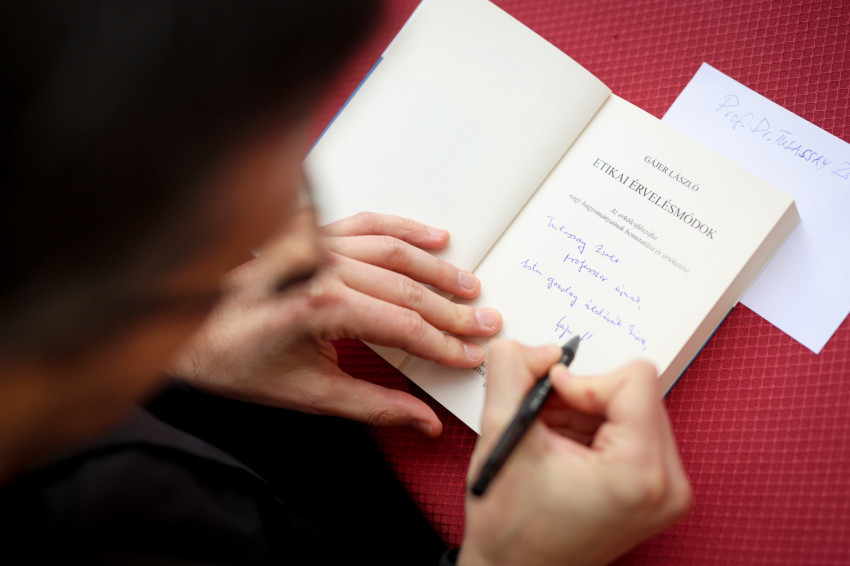 GÁJER LÁSZLÓ
ETIKAI ÉRVELÉSMÓDOK
Az erkölcsfilozófia
nagy hagyományainak bemutatása és értékelése
Tulassay Zsolt
professzor úrnak,
Isten gazdag áldását kérve,
Prof. Dr. TULASSAY